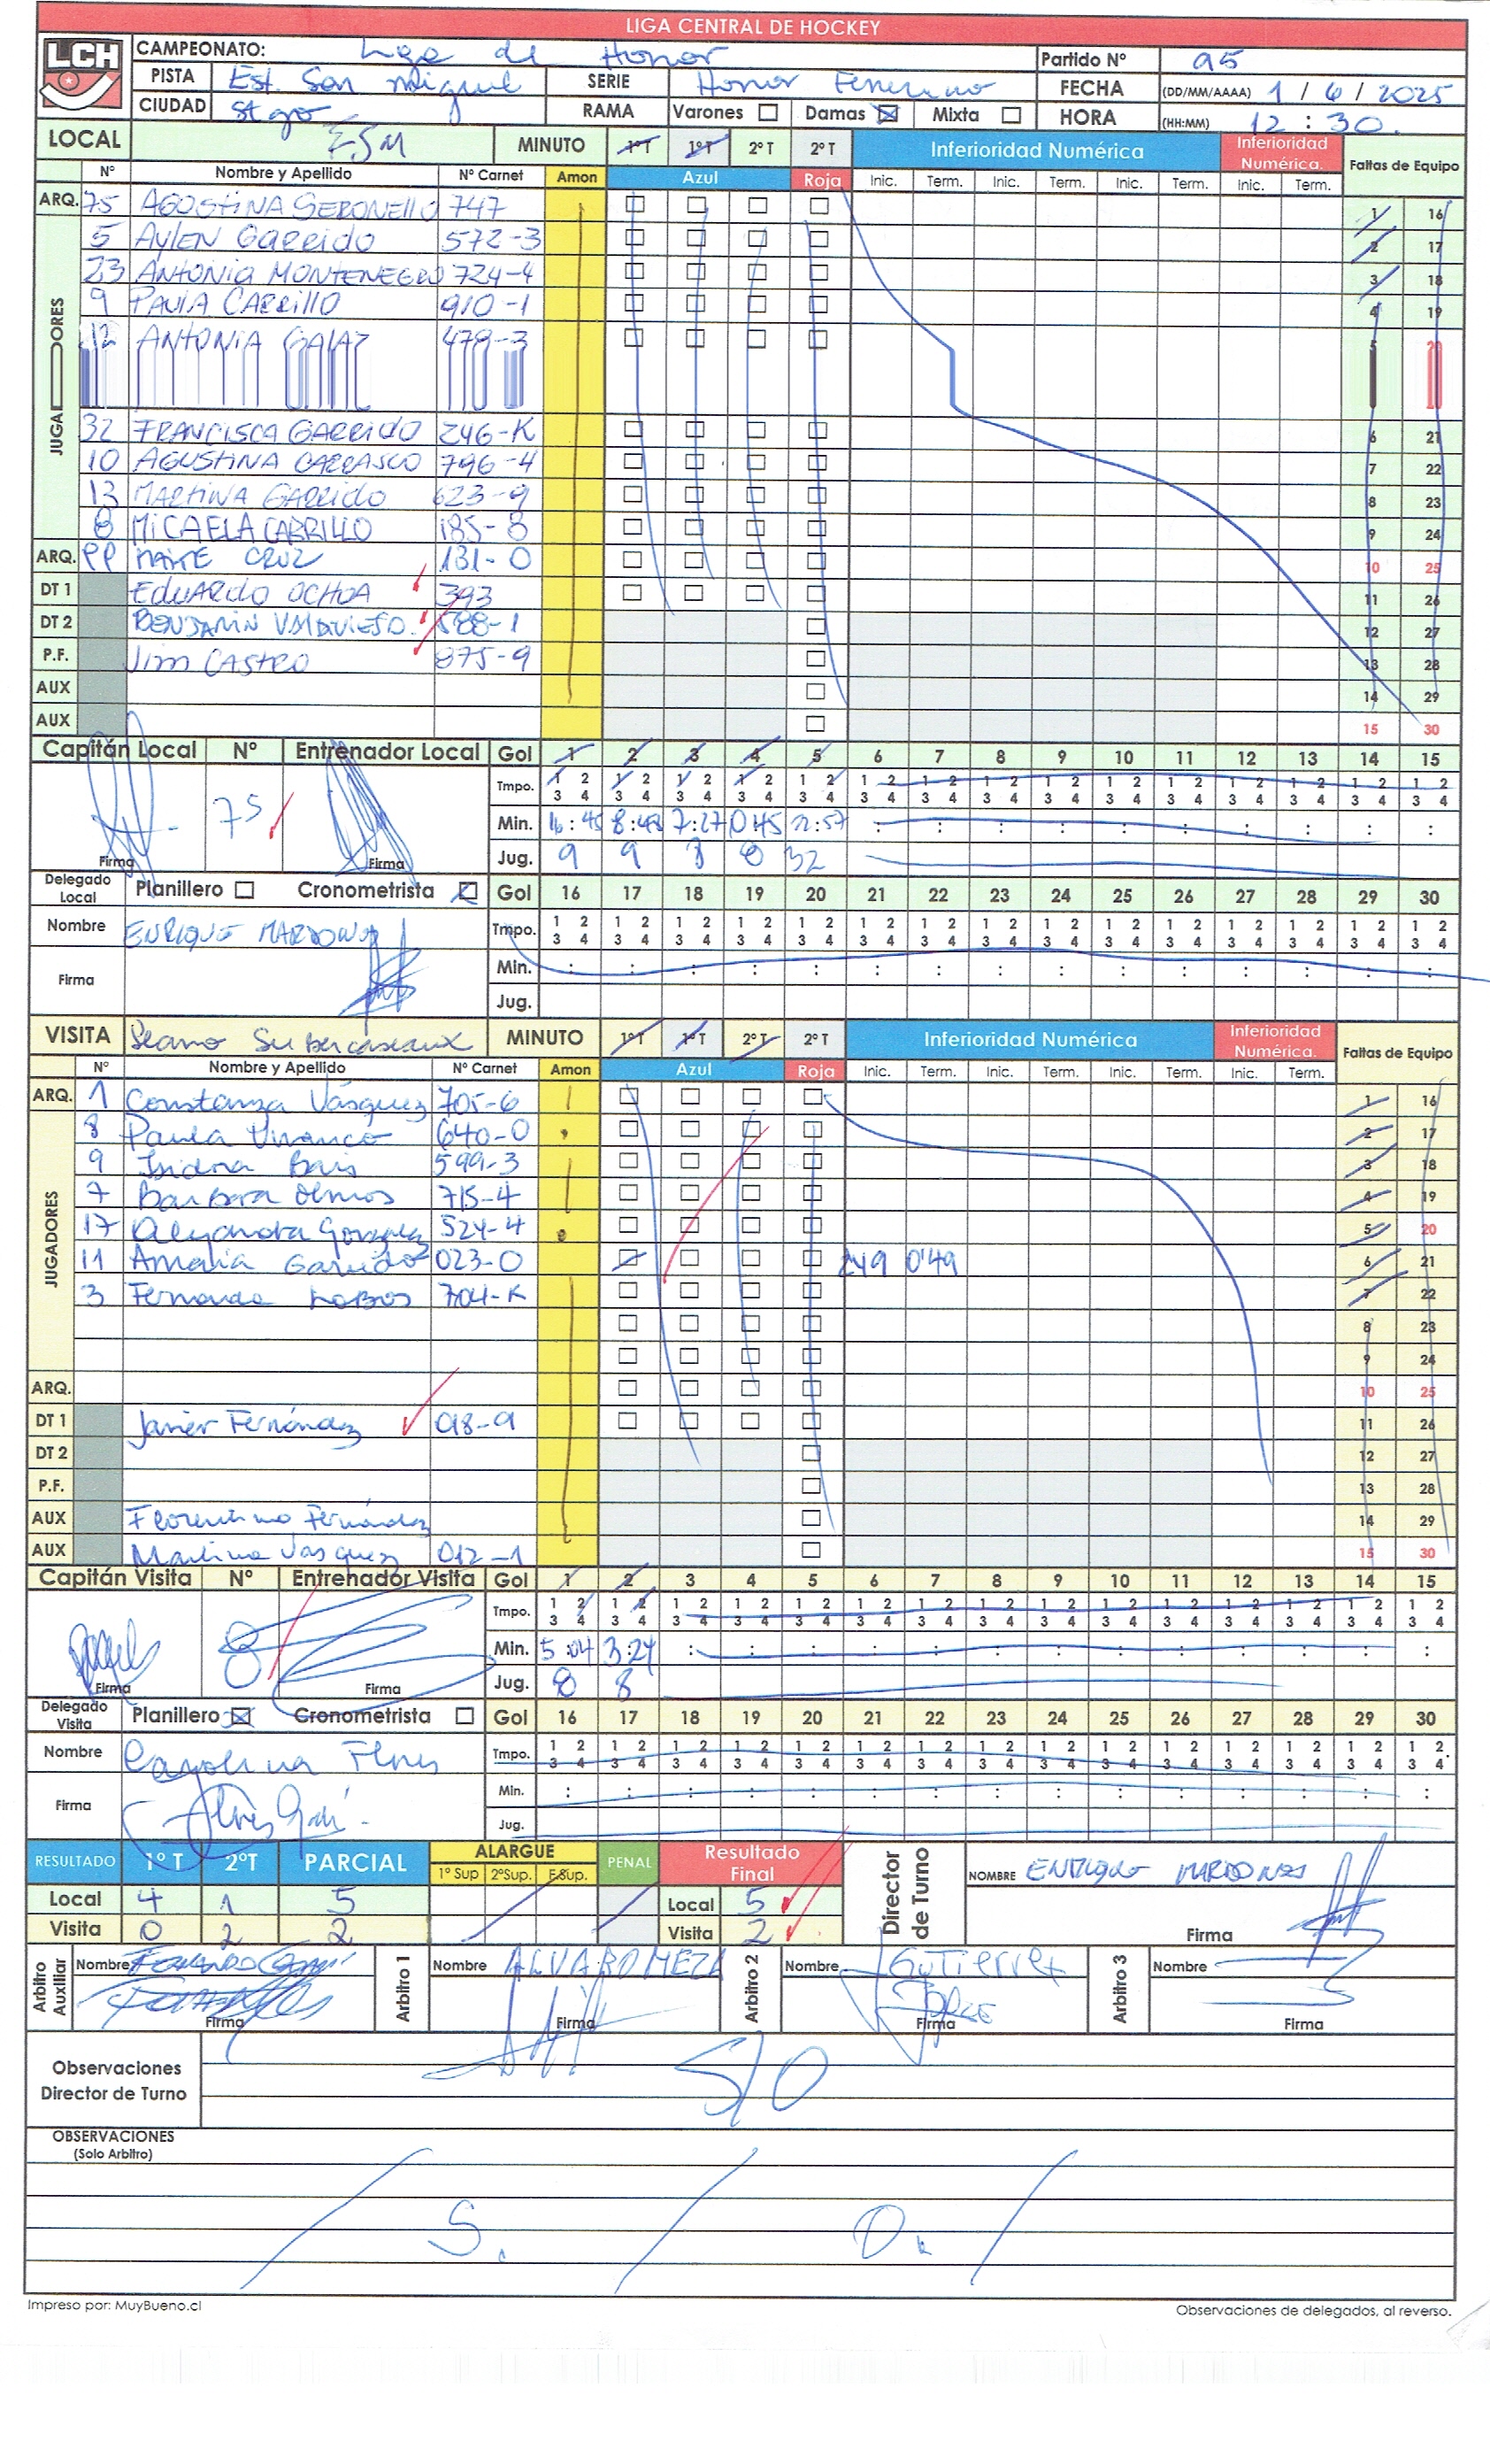 LIGA CENTRAL DE HOCKEY
LCH
CAMPEONATO: Liga de Honor Partido Nº 95
PISTA Est. San Miguel SERIE Honor Femenino FECHA (DD/MM/AAAA) 1 / 6 / 2025
CIUDAD Stgo RAMA Varones Damas Mixta HORA (HH:MM) 12 : 30.
LOCAL ESM MINUTO 1º T 1º T 2º T 2º T Inferioridad Numérica Inferioridad Numérica. Faltas de Equipo
Nº Nombre y Apellido Nº Carnet Amon Azul Roja Inic. Term. Inic. Term. Inic. Term. Inic. Term.
ARQ. 75 AGOSTINA SERONELLO 747 1 16
5 AYLEN GARRIDO 572-3 2 17
23 ANTONIA MONTENEGRO 724-4 3 18
9 PAULA CARRILLO 910-1 4 19
12 ANTONIA GALAZ 479-3 5 20
JUGADORES
32 FRANCISCA GARRIDO 246-K 6 21
10 AGUSTINA CARRASCO 796-4 7 22
13 MARTINA GARRIDO 623-9 8 23
8 MICAELA CARRILLO 185-8 9 24
ARQ. 99 MAITE CRUZ 131-0 10 25
DT 1 EDUARDO OCHOA 393 11 26
DT 2 BENJAMIN VALDIVIESO. 588-1 12 27
P.F. Jim CASTRO 875-9 13 28
AUX 14 29
AUX 15 30
Capitán Local Nº Entrenador Local Gol 1 2 3 4 5 6 7 8 9 10 11 12 13 14 15
Tmpo. 1 2 1 2 1 2 1 2 1 2 1 2 1 2 1 2 1 2 1 2 1 2 1 2 1 2 1 2 1 2
3 4 3 4 3 4 3 4 3 4 3 4 3 4 3 4 3 4 3 4 3 4 3 4 3 4 3 4 3 4
75 Min. 16:45 8:43 7:27 0:45 12:57 : : : : : : : : : :
Firma Firma Jug. 9 9 8 8 32
Delegado Local Planillero Cronometrista Gol 16 17 18 19 20 21 22 23 24 25 26 27 28 29 30
Nombre ENRIQUE MARDONES Tmpo. 1 2 1 2 1 2 1 2 1 2 1 2 1 2 1 2 1 2 1 2 1 2 1 2 1 2 1 2 1 2
3 4 3 4 3 4 3 4 3 4 3 4 3 4 3 4 3 4 3 4 3 4 3 4 3 4 3 4 3 4
Firma Min. : : : : : : : : : : : : : : :
Jug.
VISITA Seamo Subercaseaux MINUTO 1º T 1º T 2º T 2º T Inferioridad Numérica Inferioridad Numérica. Faltas de Equipo
Nº Nombre y Apellido Nº Carnet Amon Azul Roja Inic. Term. Inic. Term. Inic. Term. Inic. Term.
ARQ. 1 Constanza Vásquez 705-6 1 16
8 Paula Vivanco 640-0 2 17
9 Isidora Bais 599-3 3 18
7 Barbara Olmos 715-4 4 19
17 Alejandra Gonzalez 524-4 5 20
JUGADORES
11 Amalia Garrido 023-0 2'49 0'49 6 21
3 Fernanda Lobos 704-K 7 22
8 23
9 24
ARQ. 10 25
DT 1 Javier Fernández 018-9 11 26
DT 2 12 27
P.F. 13 28
AUX Florentino Fernández 14 29
AUX Martina Vásquez 012-1 15 30
Capitán Visita Nº Entrenador Visita Gol 1 2 3 4 5 6 7 8 9 10 11 12 13 14 15
Tmpo. 1 2 1 2 1 2 1 2 1 2 1 2 1 2 1 2 1 2 1 2 1 2 1 2 1 2 1 2 1 2
3 4 3 4 3 4 3 4 3 4 3 4 3 4 3 4 3 4 3 4 3 4 3 4 3 4 3 4 3 4
8 Min. 5:04 3:24 : : : : : : : : : : : : :
Firma Firma Jug. 8 8
Delegado Visita Planillero Cronometrista Gol 16 17 18 19 20 21 22 23 24 25 26 27 28 29 30
Nombre Carolina Flores Tmpo. 1 2 1 2 1 2 1 2 1 2 1 2 1 2 1 2 1 2 1 2 1 2 1 2 1 2 1 2 1 2
3 4 3 4 3 4 3 4 3 4 3 4 3 4 3 4 3 4 3 4 3 4 3 4 3 4 3 4 3 4
Firma Min. : : : : : : : : : : : : : : :
Jug.
RESULTADO 1º T 2ºT PARCIAL ALARGUE 1º Sup 2ºSup. E.Sup. PENAL Resultado Final Director de Turno NOMBRE ENRIQUE MARDONES
Local 4 1 5 Local 5
Visita 0 2 2 Visita 2 Firma
Arbitro Auxiliar Nombre Arbitro 1 Nombre ALVARO MEZA Arbitro 2 Nombre Gutierrez Jorge Arbitro 3 Nombre
Firma Firma Firma Firma
Observaciones Director de Turno S/O
OBSERVACIONES
(Solo Arbitro)
S. / O.
Impreso por: MuyBueno.cl Observaciones de delegados, al reverso.